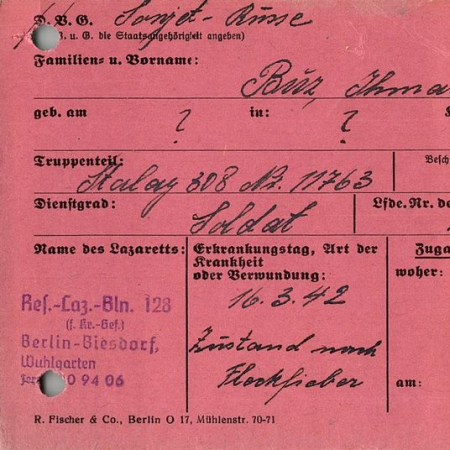 D. V. G. Sowjet-Russe
u. G. die Staatsangehörigkeit angeben)
Familien- u. Vorname:
Buz, Ihma
geb. am ? in: ?
Truppenteil: Besch
Stalag 308 Nr. 11763
Dienstgrad: Soldat Lfde. Nr. de
Name des Lazaretts: Erkrankungstag, Art der Krankheit oder Verwundung: Zuga
woher:
16. 3. 42
Res.-Laz.-Bln. 128
(f. Kr.-Gef.)
Berlin-Biesdorf,
Wuhlgarten
0 94 06
Zustand nach
Fleckfieber
am:
R. Fischer & Co., Berlin O 17, Mühlenstr. 70-71